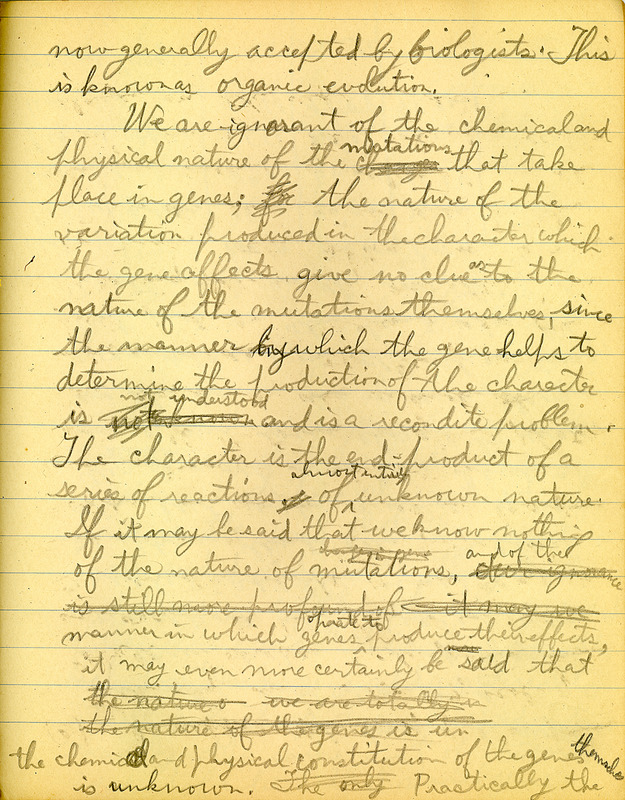 now generally accepted by biologists. This
is known as organic evolution.
We are ignorant of the chemical and
mutations
physical nature of the changes that take
place in genes; for the nature of the
variation produced in the character which
the gene affects give no clue as to the
nature of the mutations themselves, since
the manner by which the gene helps to
determine the production of the character
not understood
is not known and is a recondite problem.
The character is the end-product of a
almost entirely
series of reactions of unknown nature.
If it may be said that we know nothing
and of the
of the nature of mutations, our ignorance
is still more profound of it may we
operate to
manner in which genes produce their effects,
it may even more certainly be said that
the nature o we are totally
the nature of the genes is un
the chemical and physical constitution of the genes themselves
is unknown. The only Practically the